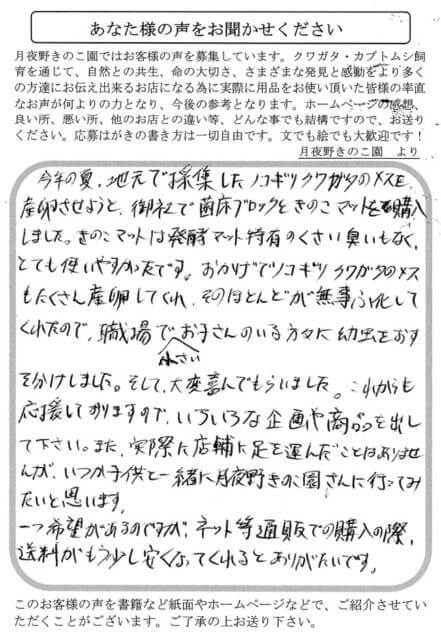 あなた様の声をお聞かせください
月夜野きのこ園ではお客様の声を募集しています。クワガタ・カブトムシ飼
育を通じて、自然との共生、命の大切さ、さまざまな発見と感動をより多く
の方達にお伝え出来るお店になる為に実際に用品をお使い頂いた皆様の率直
なお声が何よりの力となり、今後の参考となります。ホームページの感想、
良い所、悪い所、他のお店との違い等、どんな事でも結構ですので、お送り
ください。応募はがきの書き方は一切自由です。文でも絵でも大歓迎です！
月夜野きのこ園 より
今年の夏、地元で採集したノコギリクワガタのメスを
産卵させようと、御社で菌床ブロックときのこマットを購入
しました。きのこマットは発酵マット特有のくさい臭いもなく、
とても使いやすかったです。おかげでノコギリクワガタのメス
もたくさん産卵してくれ、そのほとんどが無事ふ化して
くれたので、職場でお子さんのいる方々に幼虫をおす
小さい
そ分けしました。そして、大変喜んでもらいました。これからも
応援しておりますので、いろいろな企画や商品を出し
て下さい。また、実際に店舗に足を運んだことはありませ
んが、いつか子供と一緒に月夜野きのこ園さんに行ってみ
たいと思います。
一つ希望があるのですが、ネット等通販での購入の際、
送料がもう少し安くなってくれるとありがたいです。
このお客様の声を書籍など紙面やホームページなどで、ご紹介させてい
ただくことがございます。ご了承の上お送り下さい。